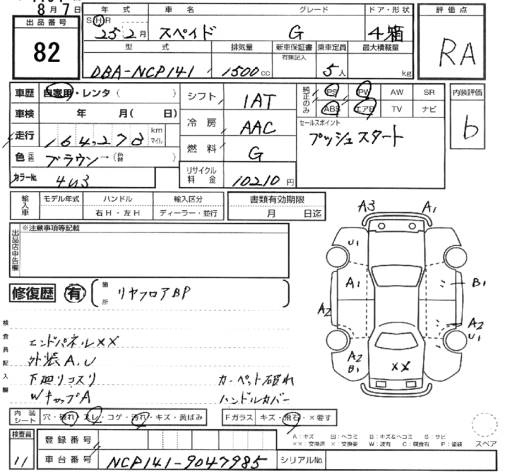 8月7日
出品番号 82
年式 車名 グレード ドア・形状
S H R 25.2月 スペイド G 4 箱
型式 排気量 新車保証書 有(後記入) 乗車定員 最大積載量
DBA-NCP141 1500cc 5人 kg
評価点
RA
車歴 自家用・レンタ( )
車検 年 月( 日)
走行 164,278 km マイル
色(元色) ブラウン→(替)
カラーNo. 4U3
シフト 1AT
冷房 AAC
燃料 G
リサイクル料金 10210円
純正のみ PS PW AW SR
ABS エアB TV ナビ
セールスポイント
プッシュスタート
内装評価
b
輸入車 モデル年式 ハンドル 輸入区分
右H・左H ディーラー・並行
書類有効期限
月 日迄
出品店申告欄 ※注意事項等記載
修復歴 有 箇所 リヤフロアBP
検査員記入欄
エンドパネルXX
外装A.U
下廻リコスリ
WキャップA
カーペット破れ
ハンドルカバー
A3 A1
U1
A1 B1
A2 A2
U1
A2
B1
XX
内装シート 穴・破れ・スレ・コゲ・汚れ・キズ・黄ばみ
Fガラス キズ・飛石・X要す
A:キズ U:ヘコミ B:キズ&ヘコミ S:サビ
スペア
検査員 11
登録番号
車台番号 NCP141-9047985
シリアルNo.